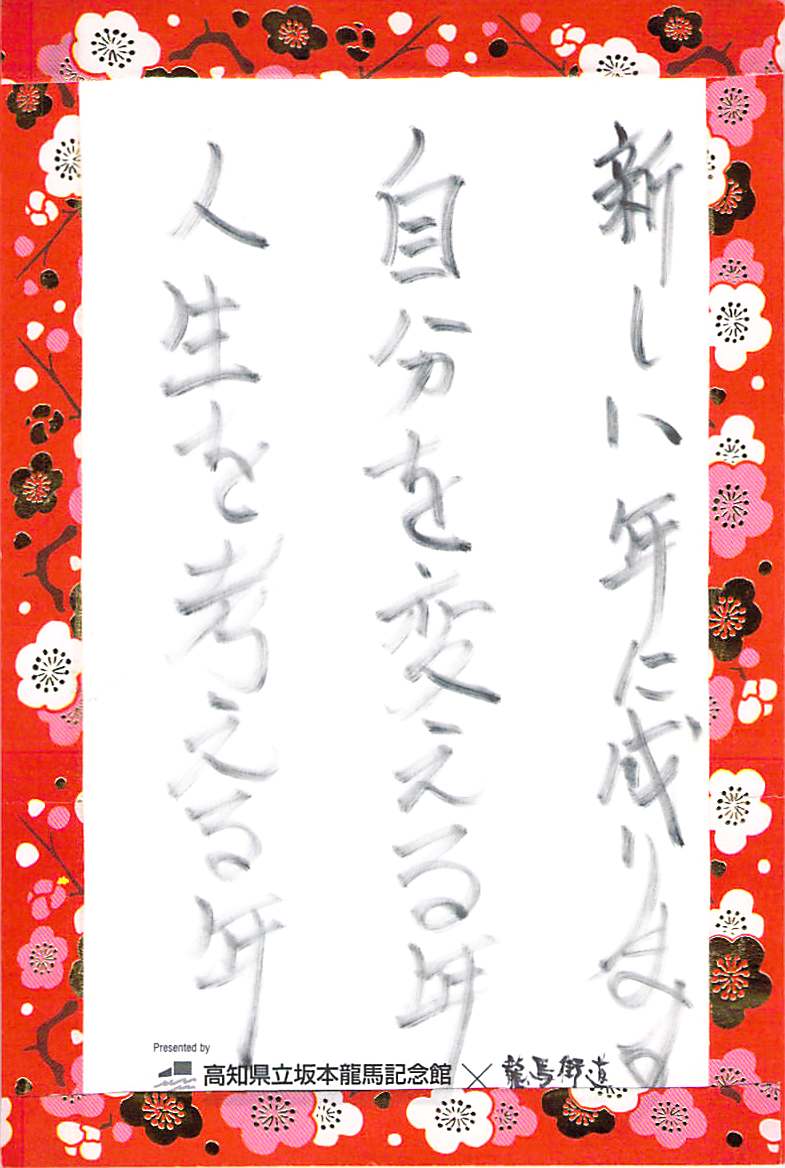 新しい年に成ります
自分を変える年
人生を考える年
Presented by
高知県立坂本龍馬記念館×龍馬街道